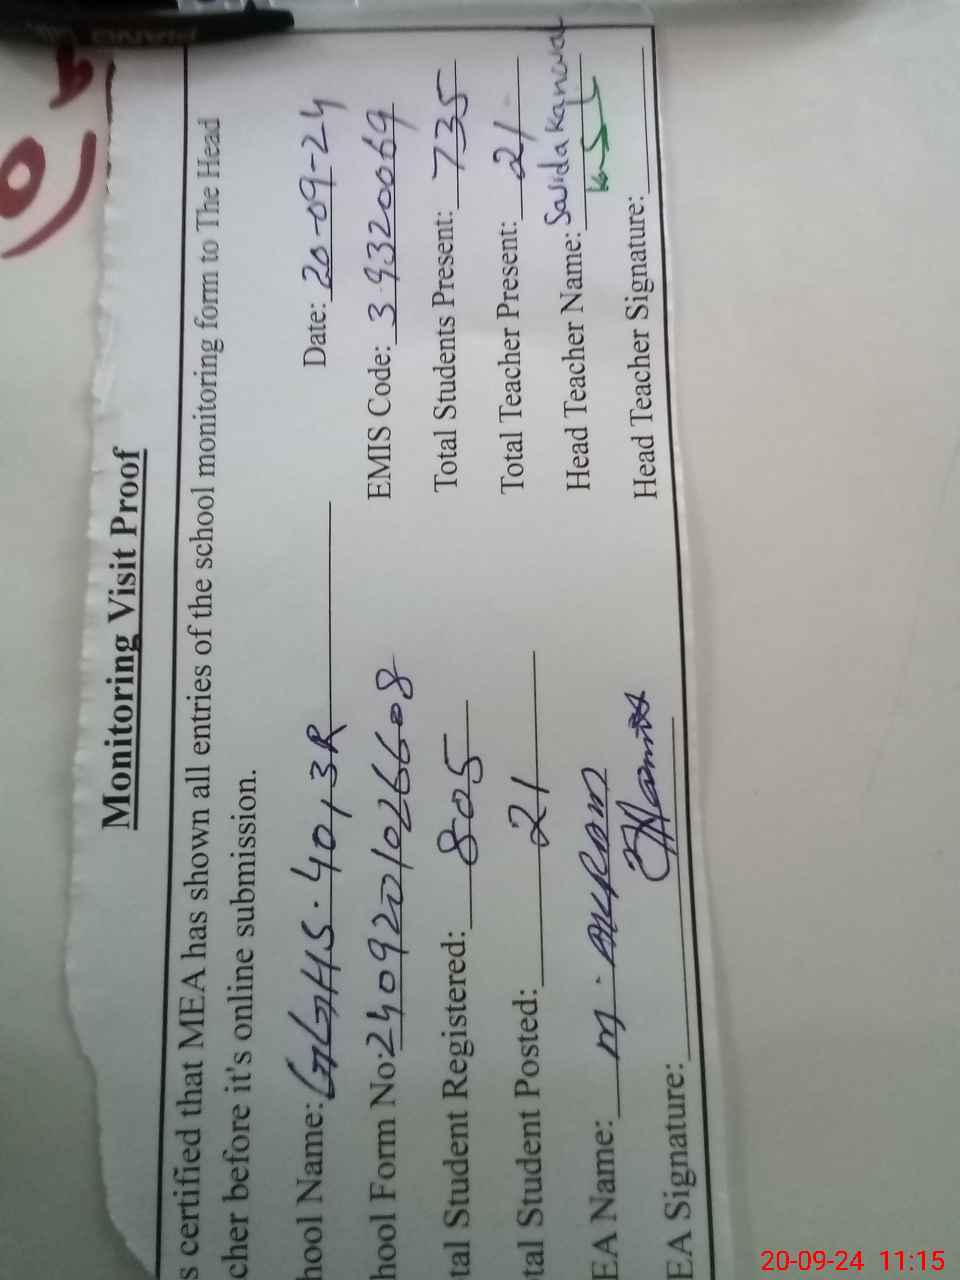 Monitoring Visit Proof
s certified that MEA has shown all entries of the school monitoring form to The Head
cher before it's online submission.
hool Name: GGHS. 40, 3R Date: 20-09-24
hool Form No: 2409201026608 EMIS Code: 3 9320069
tal Student Registered: 805 Total Students Present: 735
tal Student Posted: 21 Total Teacher Present: 21
EA Name: m. Head Teacher Name:
EA Signature: Head Teacher Signature:
20-09-24 11:15